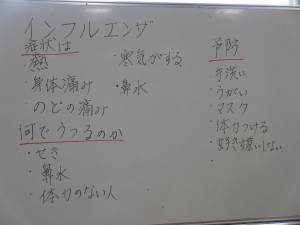 インフルエンザ
症状は
・熱
・身体痛み
・のどの痛み
・寒気がする
・鼻水
何でうつるのか
・せき
・鼻水
・体力のない人
予防
・手洗い
・うがい
・マスク
・体力つける
・好き嫌いしない
・